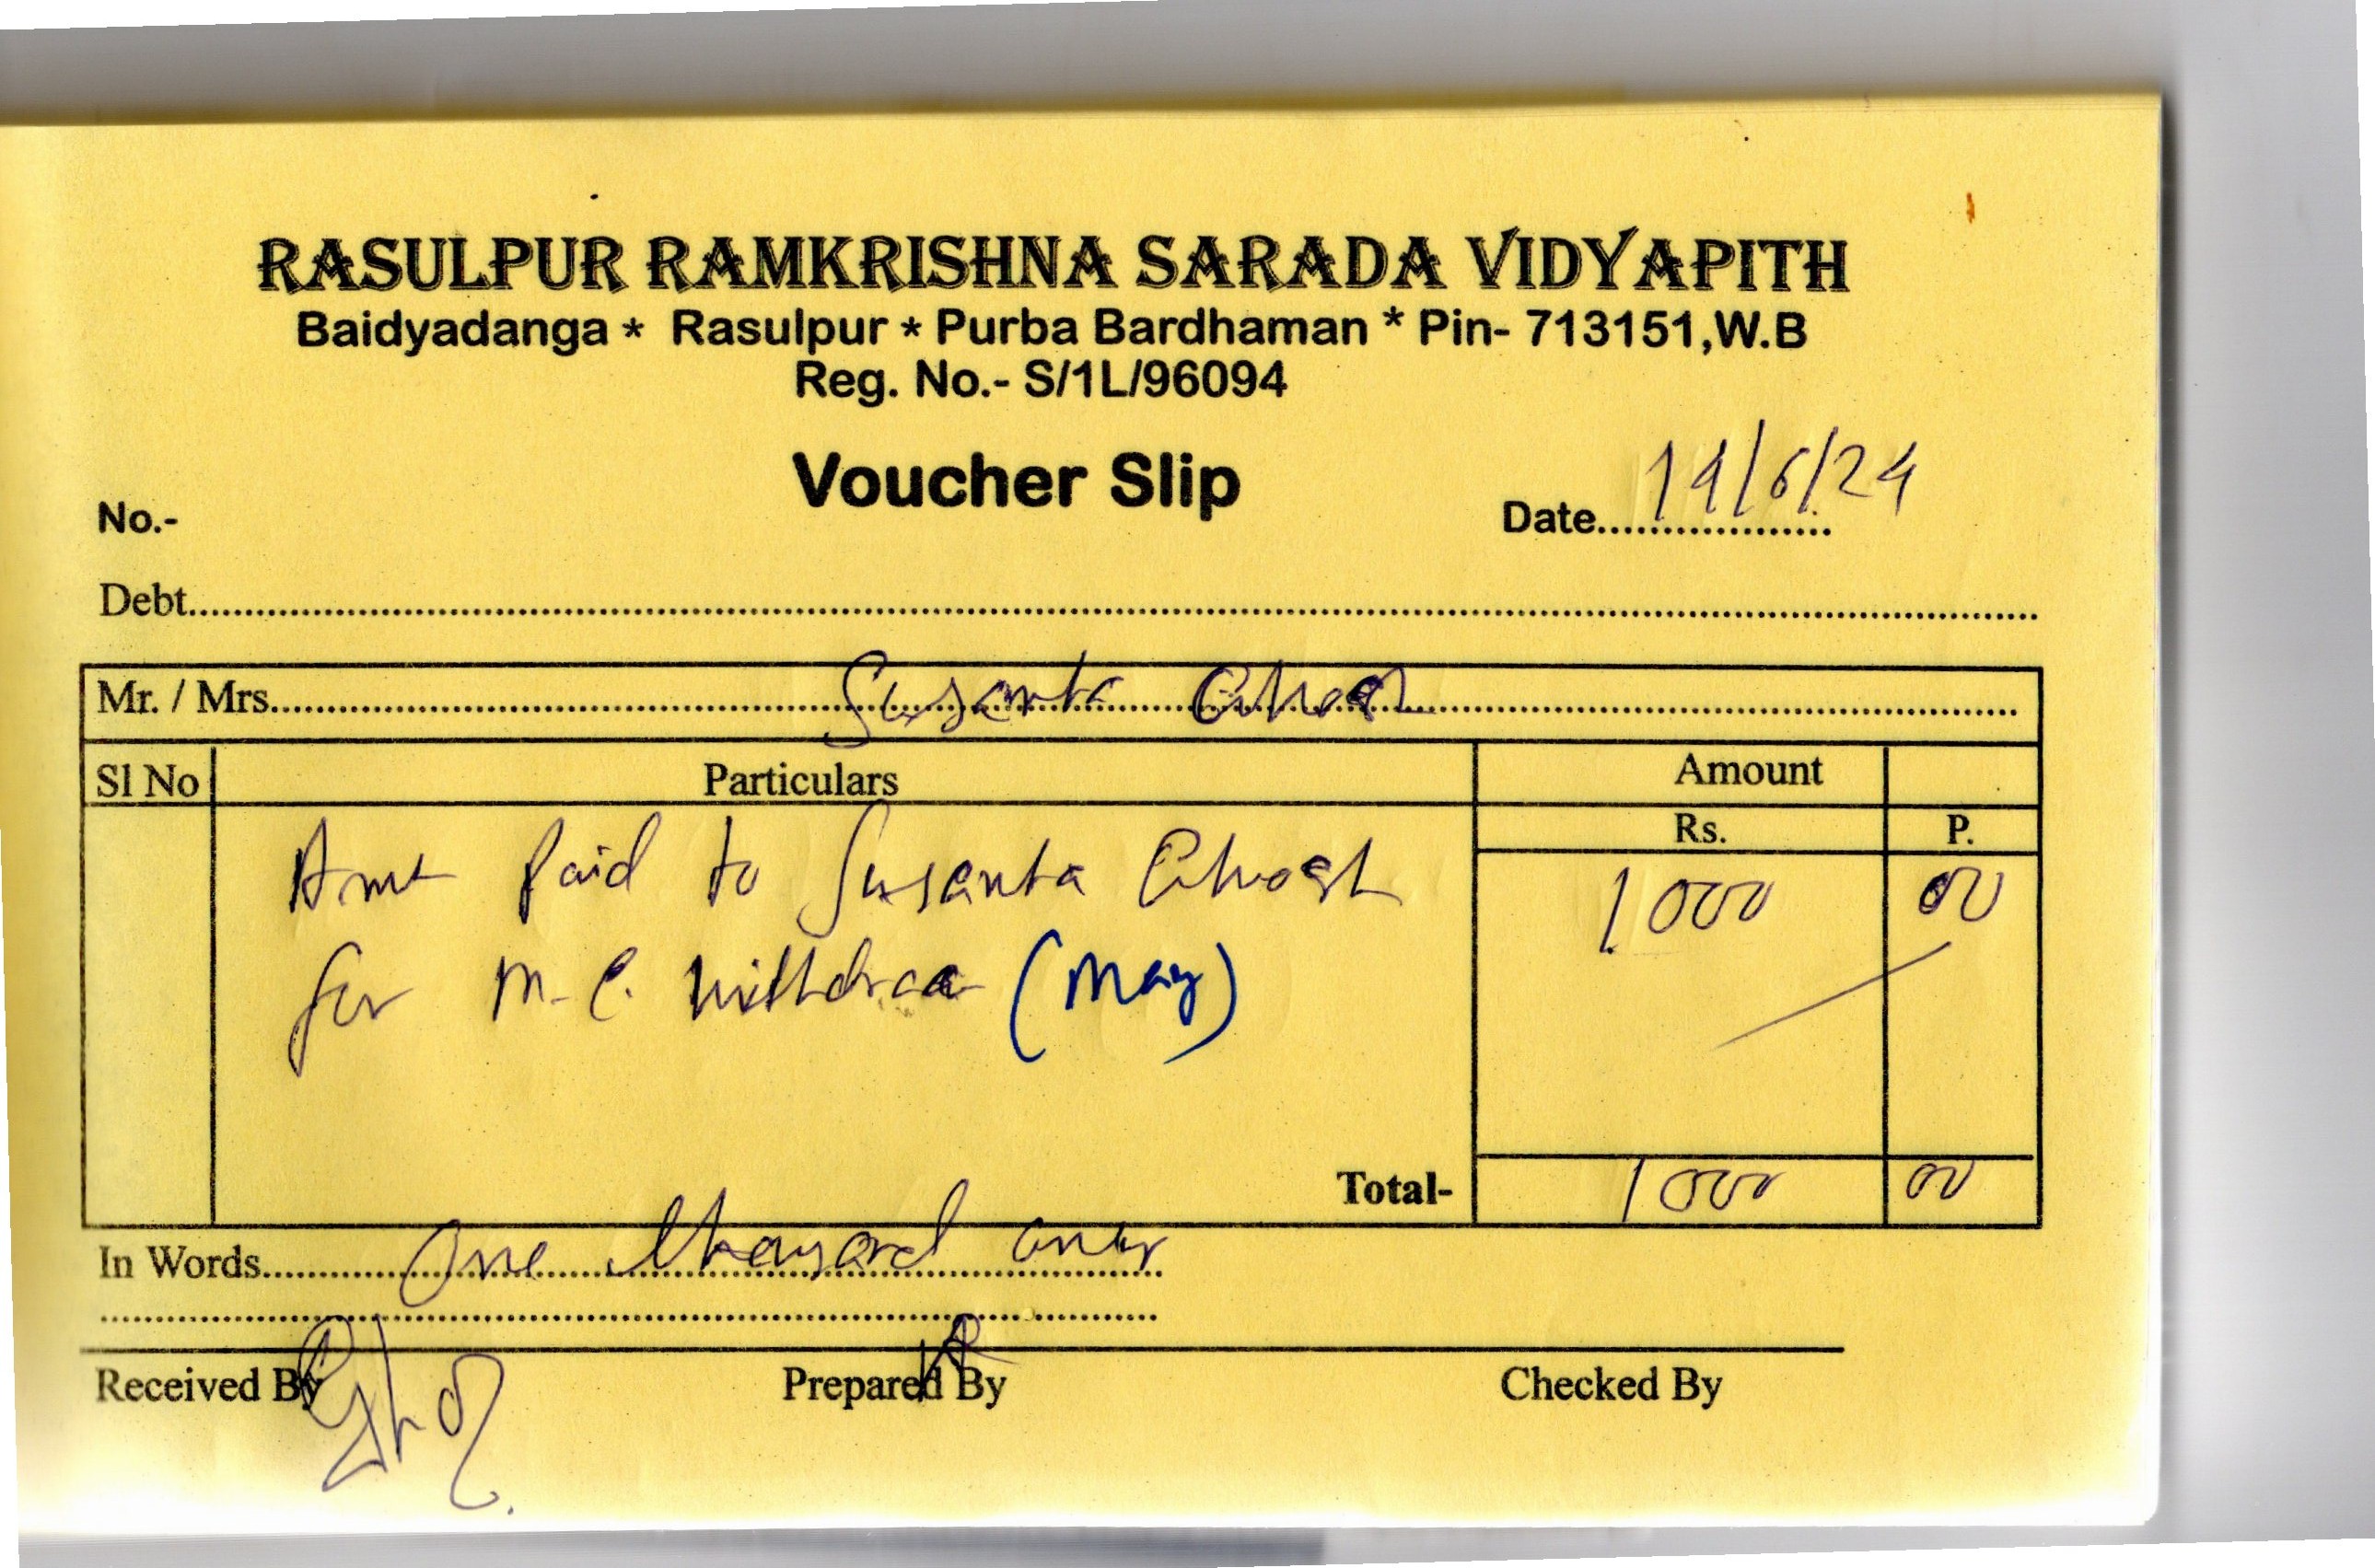 RASULPUR RAMKRISHNA SARADA VIDYAPITH
Baidyadanga * Rasulpur * Purba Bardhaman * Pin- 713151,W.B
Reg. No.- S/1L/96094
Voucher Slip
No.- Date 19/6/24
Debt
Mr. / Mrs. Susanta Ghosh
Sl No Particulars Amount
Rs. P.
Amt Paid to Susanta Ghosh 1000 00
for M.C. withdraa (May)
Total- 1000 00
In Words One thousand only
Received By Prepared By Checked By